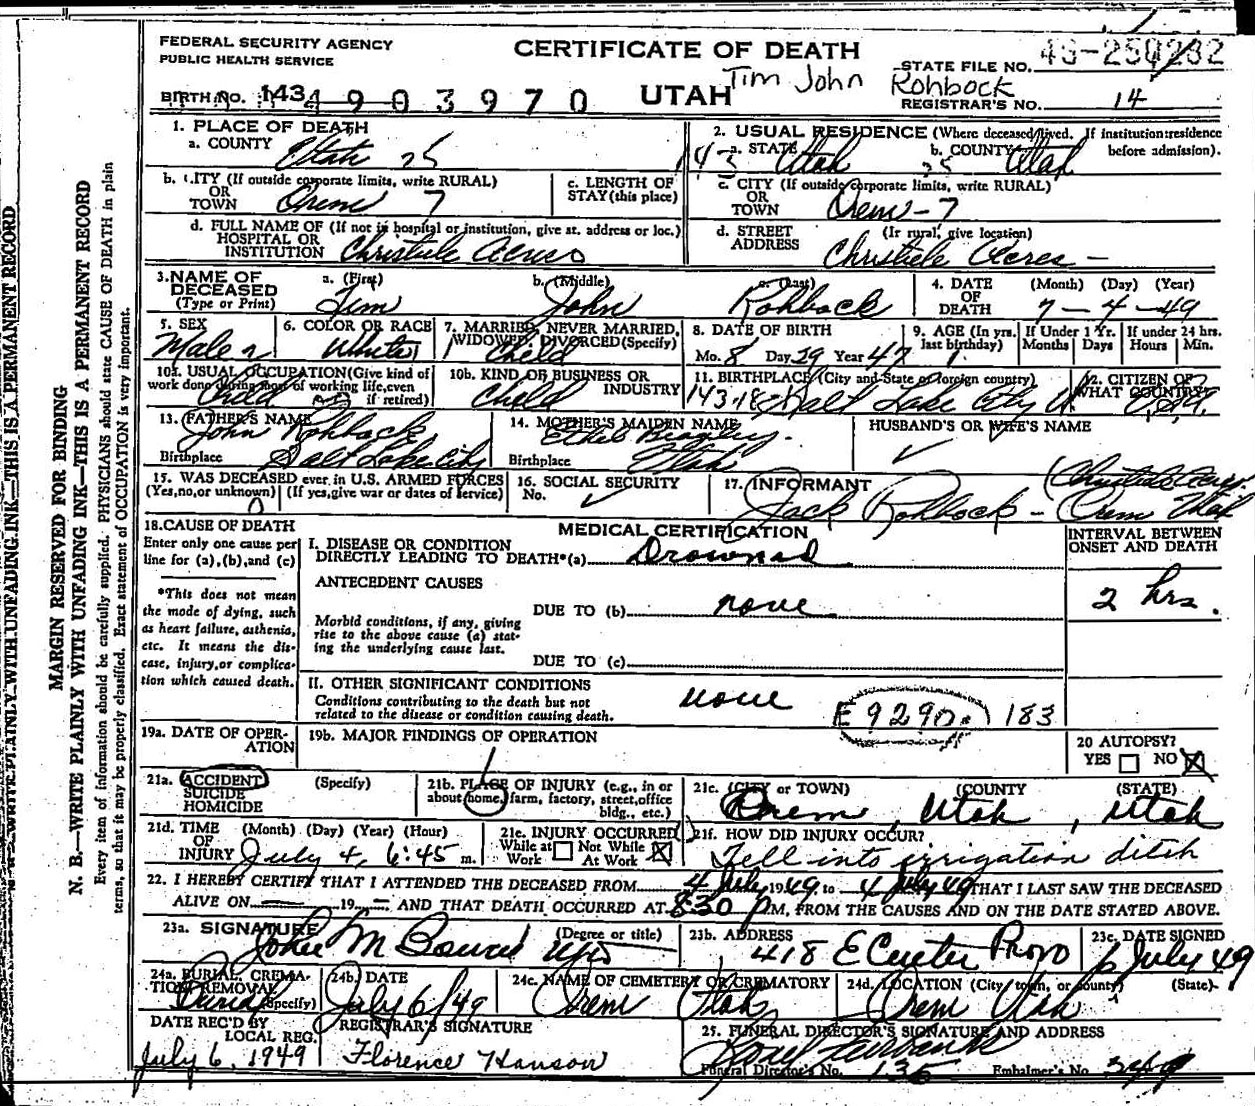 FEDERAL SECURITY AGENCY
PUBLIC HEALTH SERVICE
CERTIFICATE OF DEATH
STATE FILE NO.
Tim John Rohbock
BIRTH NO. 143 4903970
UTAH
REGISTRAR'S NO. 14
1. PLACE OF DEATH
a. COUNTY Utah 25
2. USUAL RESIDENCE (Where deceased lived. If institution: residence before admission).
143 a. STATE Utah b. COUNTY Utah
25
b. CITY (If outside corporate limits, write RURAL)
OR
TOWN Orem 7
c. LENGTH OF
STAY (this place)
c. CITY (If outside corporate limits, write RURAL)
OR
TOWN Orem - 7
d. FULL NAME OF (If not in hospital or institution, give st. address or loc.)
HOSPITAL OR
INSTITUTION Christiele Acres
d. STREET (If rural, give location)
ADDRESS Christiele Acres -
3. NAME OF DECEASED (Type or Print)
a. (First) Tim
b. (Middle) John
c. (Last) Rohbock
4. DATE OF DEATH (Month) (Day) (Year)
7-4-49
5. SEX
Male
6. COLOR OR RACE
White
7. MARRIED, NEVER MARRIED, WIDOWED, DIVORCED (Specify)
Child
8. DATE OF BIRTH
Mo. 8 Day 29 Year 47
9. AGE (In yrs. last birthday) 1
If Under 1 Yr. Months Days
If under 24 hrs. Hours Min.
10a. USUAL OCCUPATION (Give kind of work done during most of working life, even if retired)
Child
10b. KIND OF BUSINESS OR INDUSTRY
Child
11. BIRTHPLACE (City and State or foreign country)
143-18 Salt Lake City U.
12. CITIZEN OF WHAT COUNTRY?
U.S.A.
13. FATHER'S NAME
John Rohbock
Birthplace Salt Lake City
14. MOTHER'S MAIDEN NAME
Ethel
Birthplace Utah
HUSBAND'S OR WIFE'S NAME
✓
15. WAS DECEASED ever in U.S. ARMED FORCES
(Yes, no, or unknown) (If yes, give war or dates of service)
16. SOCIAL SECURITY
No. ✓
17. INFORMANT
Jack Rohbock - Orem Utah
(Christiele Acres
18. CAUSE OF DEATH
Enter only one cause per line for (a), (b), and (c)
*This does not mean the mode of dying, such as heart failure, asthenia, etc. It means the disease, injury, or complication which caused death.
MEDICAL CERTIFICATION
I. DISEASE OR CONDITION
DIRECTLY LEADING TO DEATH*(a) Drowned
INTERVAL BETWEEN ONSET AND DEATH
2 hrs.
ANTECEDENT CAUSES
DUE TO (b) none
Morbid conditions, if any, giving rise to the above cause (a) stating the underlying cause last.
DUE TO (c)
II. OTHER SIGNIFICANT CONDITIONS
Conditions contributing to the death but not related to the disease or condition causing death.
none
E9290. 183
19a. DATE OF OPERATION
19b. MAJOR FINDINGS OF OPERATION
20 AUTOPSY?
YES NO X
21a. ACCIDENT
SUICIDE
HOMICIDE
(Specify)
21b. PLACE OF INJURY (e.g., in or about home, farm, factory, street, office bldg., etc.)
21c. (CITY or TOWN) (COUNTY (STATE)
Orem, Utah, Utah
21d. TIME OF INJURY (Month) (Day) (Year) (Hour)
July 4, 6:45 m.
21e. INJURY OCCURRED
While at Work Not While At Work X
21f. HOW DID INJURY OCCUR?
Fell into irrigation ditch
22. I HEREBY CERTIFY THAT I ATTENDED THE DECEASED FROM 4 July 1949, to 4 July 49 THAT I LAST SAW THE DECEASED
ALIVE ON 19 AND THAT DEATH OCCURRED AT 8:30 PM, FROM THE CAUSES AND ON THE DATE STATED ABOVE.
23a. SIGNATURE (Degree or title)
John M
23b. ADDRESS
418 E Center Provo
23c. DATE SIGNED
6 July 49
24a. BURIAL, CREMATION, REMOVAL (Specify)
Burial
24b. DATE
July 6/49
24c. NAME OF CEMETERY OR CREMATORY
Orem Utah
24d. LOCATION (City, town, or county) (State)
Orem Utah
DATE REC'D BY LOCAL REG.
July 6, 1949
REGISTRAR'S SIGNATURE
Florence Hanson
25. FUNERAL DIRECTOR'S SIGNATURE AND ADDRESS
Funeral Director's No. 135 Embalmer's No.
MARGIN RESERVED FOR BINDING
N. B.—WRITE PLAINLY WITH UNFADING INK—THIS IS A PERMANENT RECORD
Every item of information should be carefully supplied. PHYSICIANS should state CAUSE OF DEATH in plain
terms, so that it may be properly classified. Exact statement of OCCUPATION is very important.
WRITE PLAINLY WITH UNFADING INK—THIS IS A PERMANENT RECORD